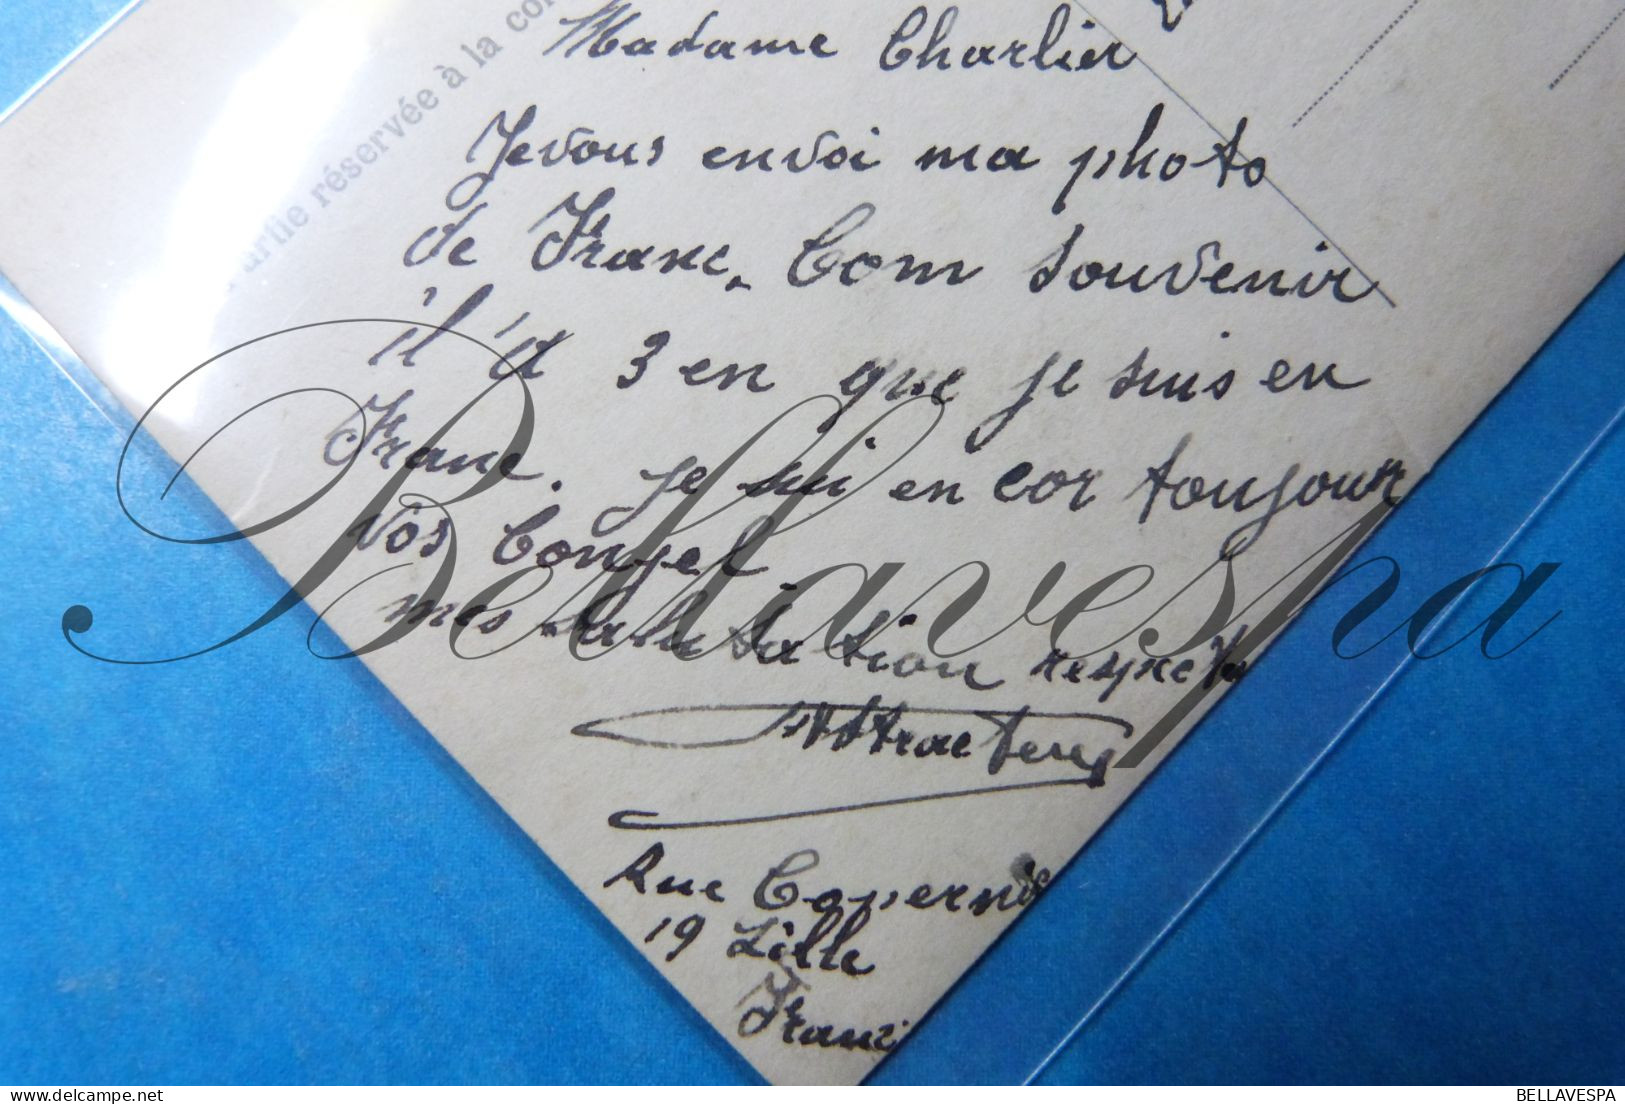 Partie réservée à la cor
Madame Charlier
Je vous envoi ma photo
de Franc. Com souvenir
il 'et 3 en que je suis en
Franc. je sui en cor toujour
vos Conjel.
mes salutation respectu
Rue Copernic
19 Lille
Franc
Bellavespa
BELLAVESPA